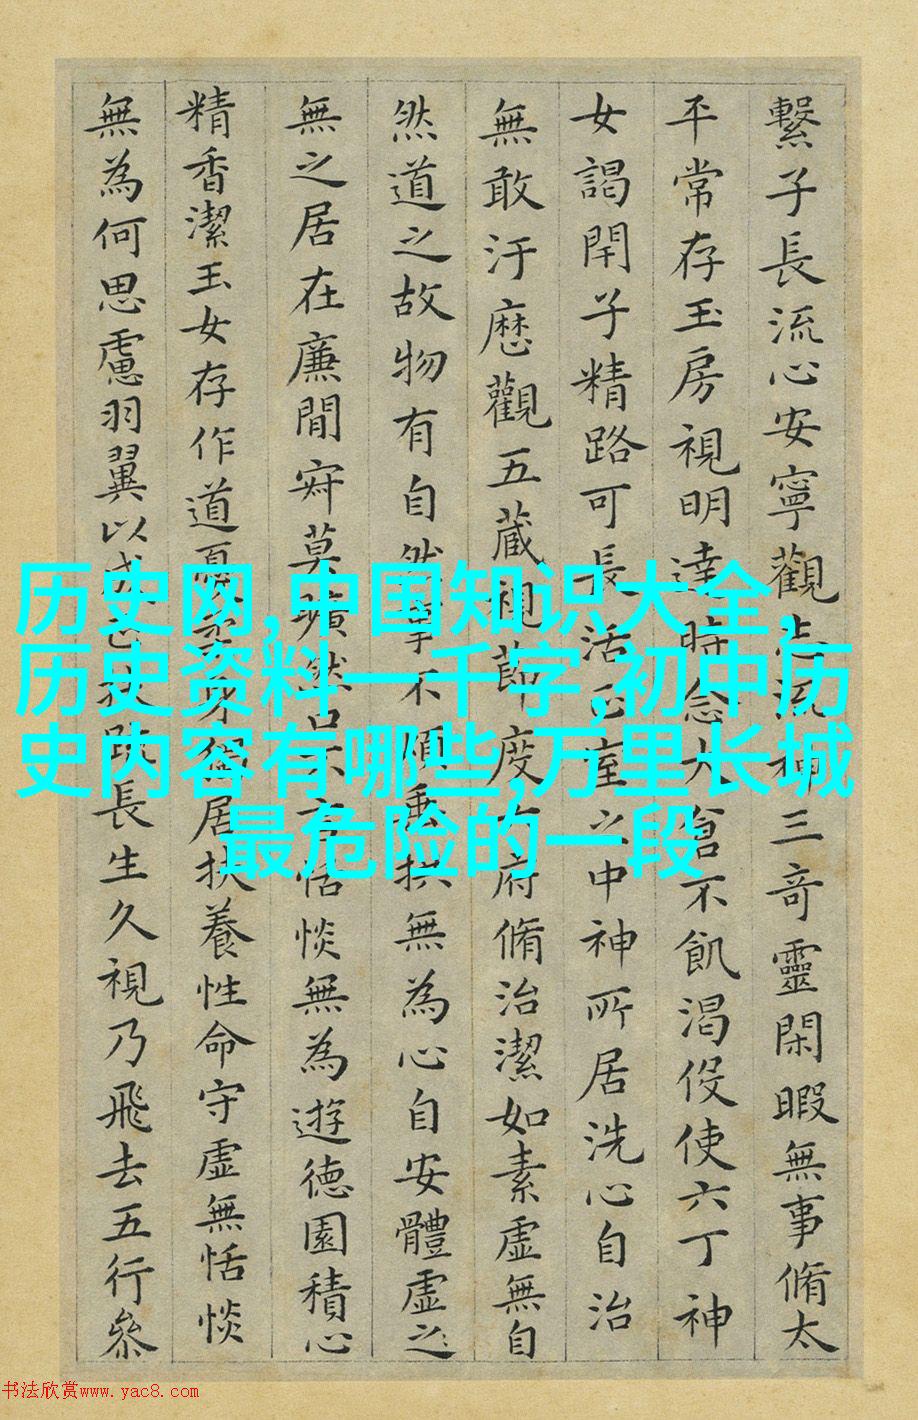 繫子長流心安寧觀志流神三奇靈閑暇無事脩太
平常存玉房視明達時念大倉不飢渴役使六丁神
女謁閇子精路可長活正室之中神所居洗心自治
無敢汙歷觀五藏視節度六府脩治潔如素虛無自
然道之故物有自然事不煩垂拱無為心自安體虛之
無之居在廉間寂莫曠然口不言恬惔無為遊德園積心
精香潔玉女存作道憂柔身獨居扶養性命守虛無恬惔
無為何思慮羽翼以成正扶踈長生久視乃飛去五行參
历史网,中国知识大全,
历史资料一千字,初中历
史内容有哪些,万里长城
最危险的一段
书法欣赏www.yac8.com